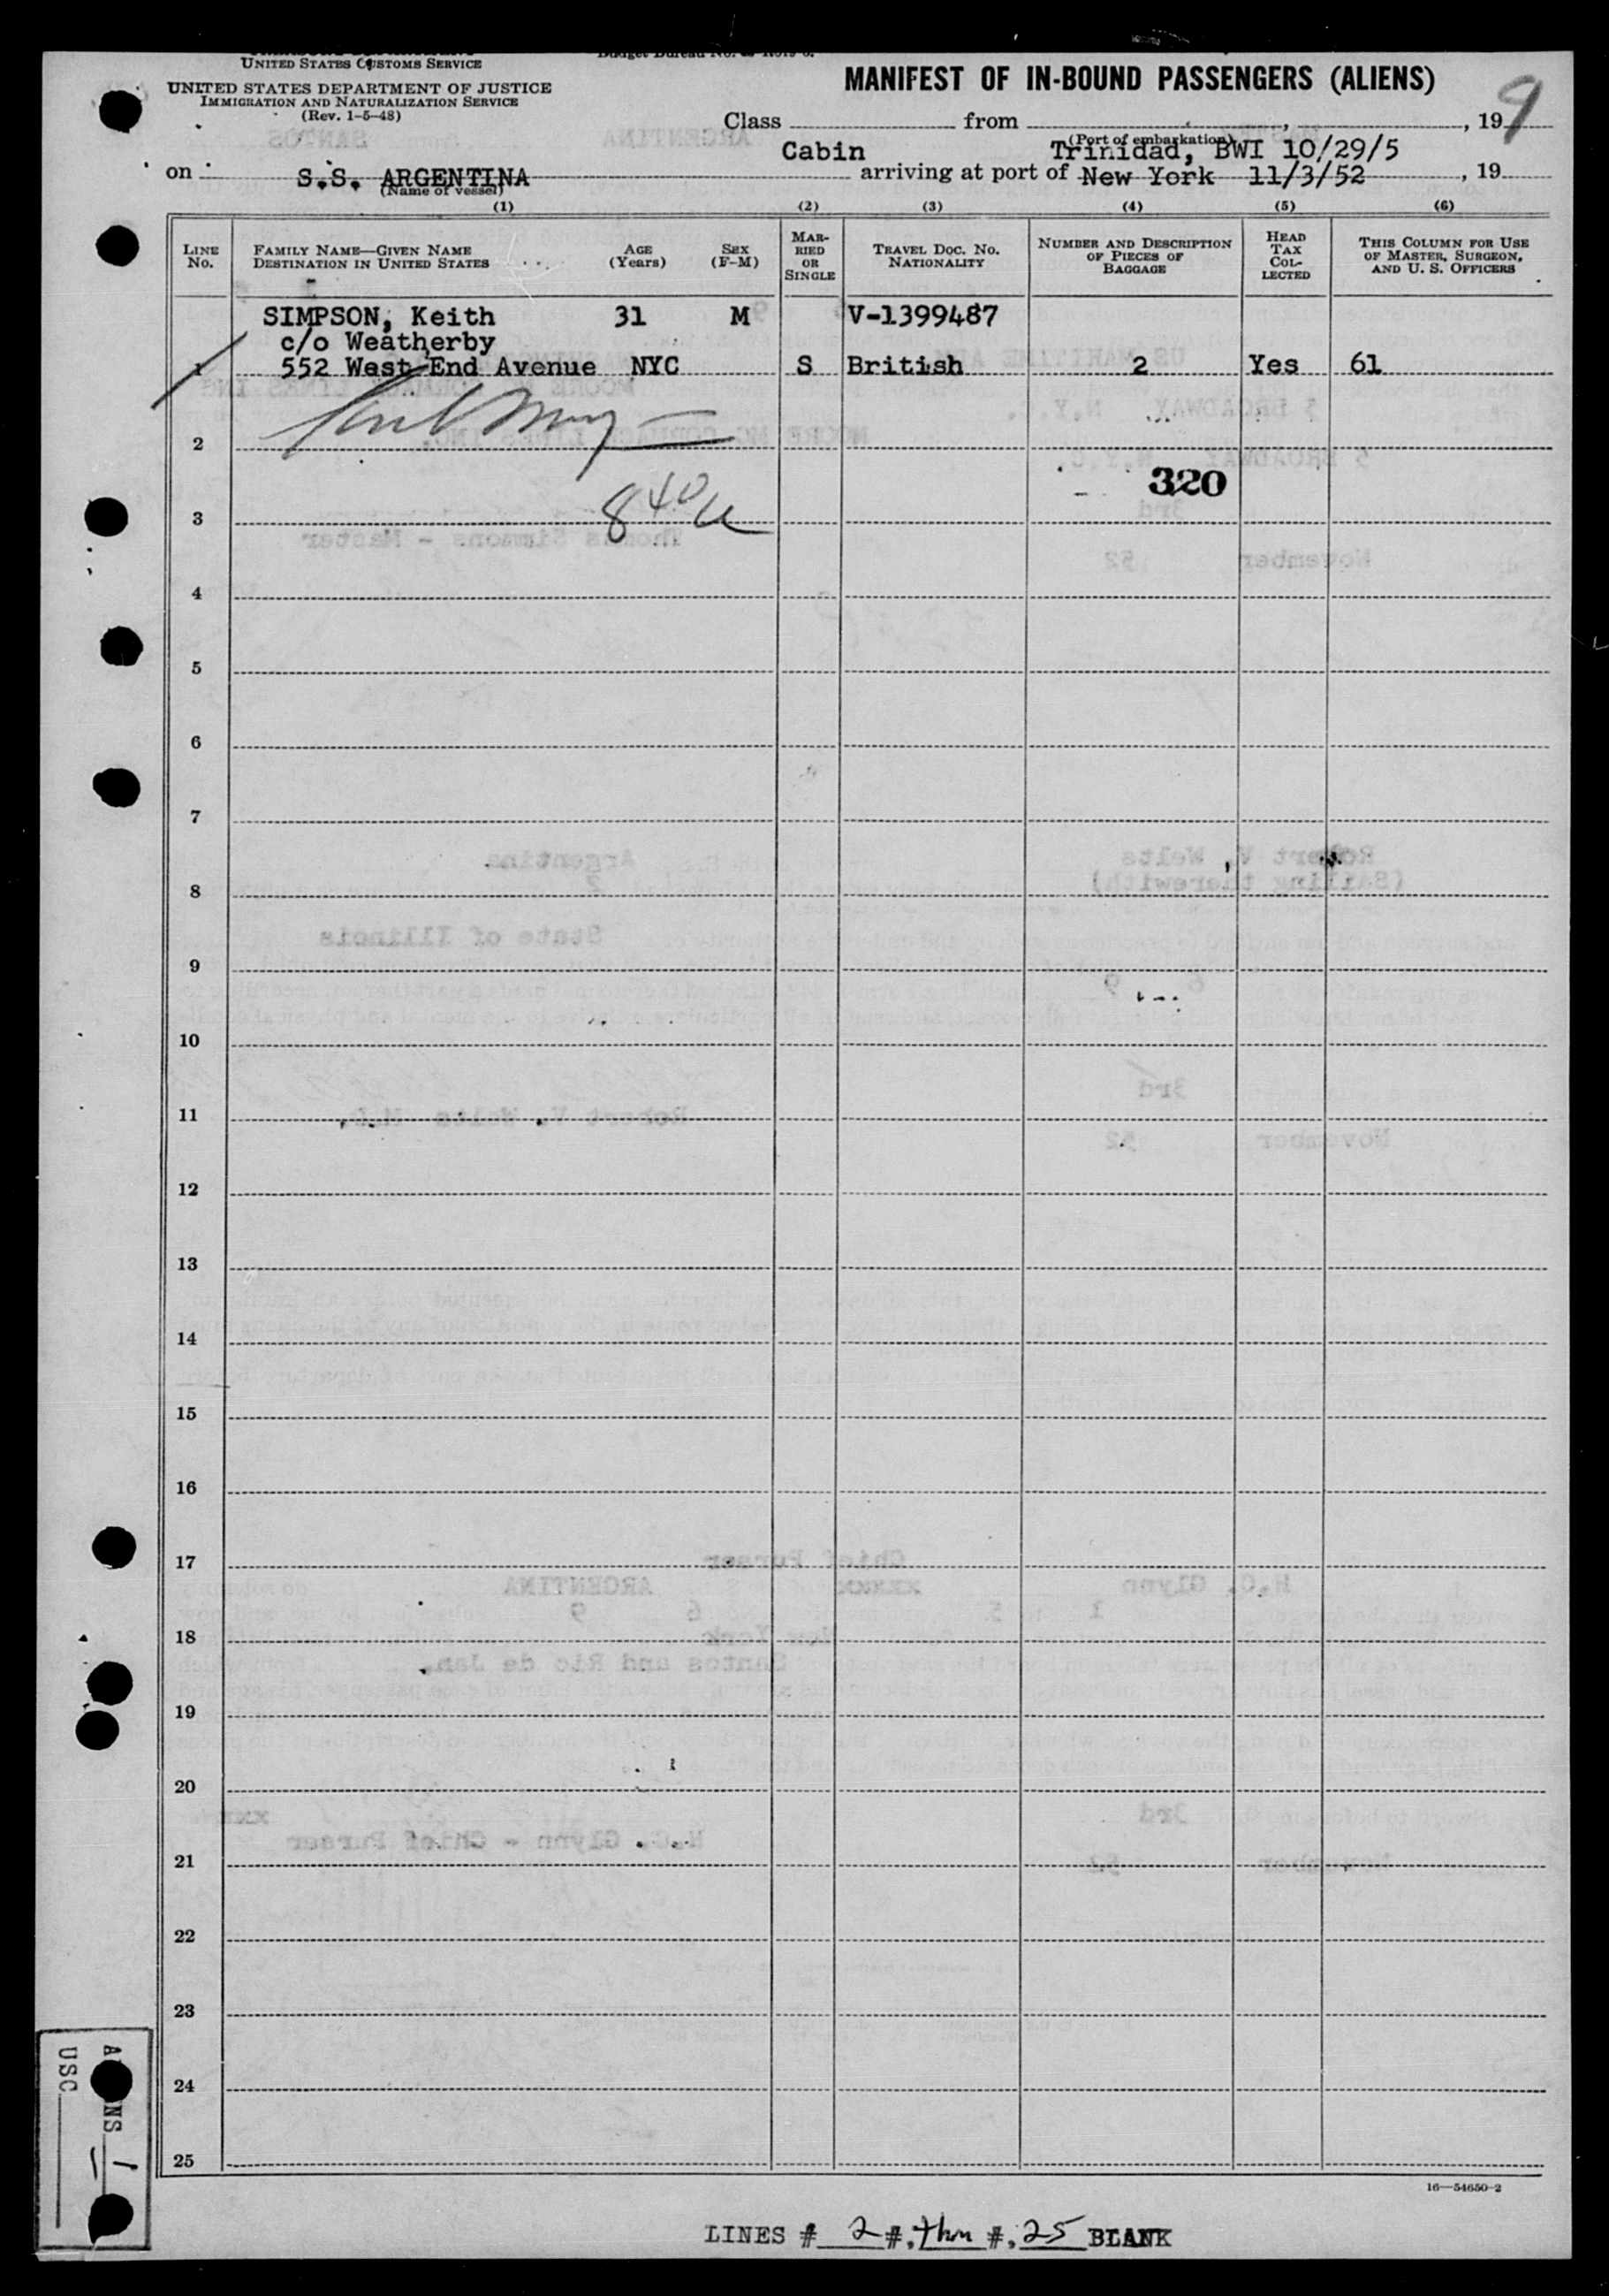 UNITED STATES CUSTOMS SERVICE
UNITED STATES DEPARTMENT OF JUSTICE
IMMIGRATION AND NATURALIZATION SERVICE
(Rev. 1-5-48)
MANIFEST OF IN-BOUND PASSENGERS (ALIENS)
9
Class from , , 19
(Port of embarkation)
Cabin Trinidad, BWI 10/29/5
on S.S. ARGENTINA arriving at port of New York 11/3/52 , 19
(Name of vessel)
(1) (2) (3) (4) (5) (6)
LINE No. FAMILY NAME—GIVEN NAME DESTINATION IN UNITED STATES AGE (Years) SEX (F-M) MARRIED OR SINGLE TRAVEL DOC. No. NATIONALITY NUMBER AND DESCRIPTION OF PIECES OF BAGGAGE HEAD TAX COLLECTED THIS COLUMN FOR USE OF MASTER, SURGEON, AND U. S. OFFICERS
SIMPSON, Keith 31 M V-1399487
c/o Weatherby
1 552 West End Avenue NYC S British 2 Yes 61
2
320
3
4
5
6
7
8
9
10
11
12
13
14
15
16
17
18
19
20
21
22
23
24
25
16—54650-2
LINES # 2 #, thru #, 25 BLANK
USC